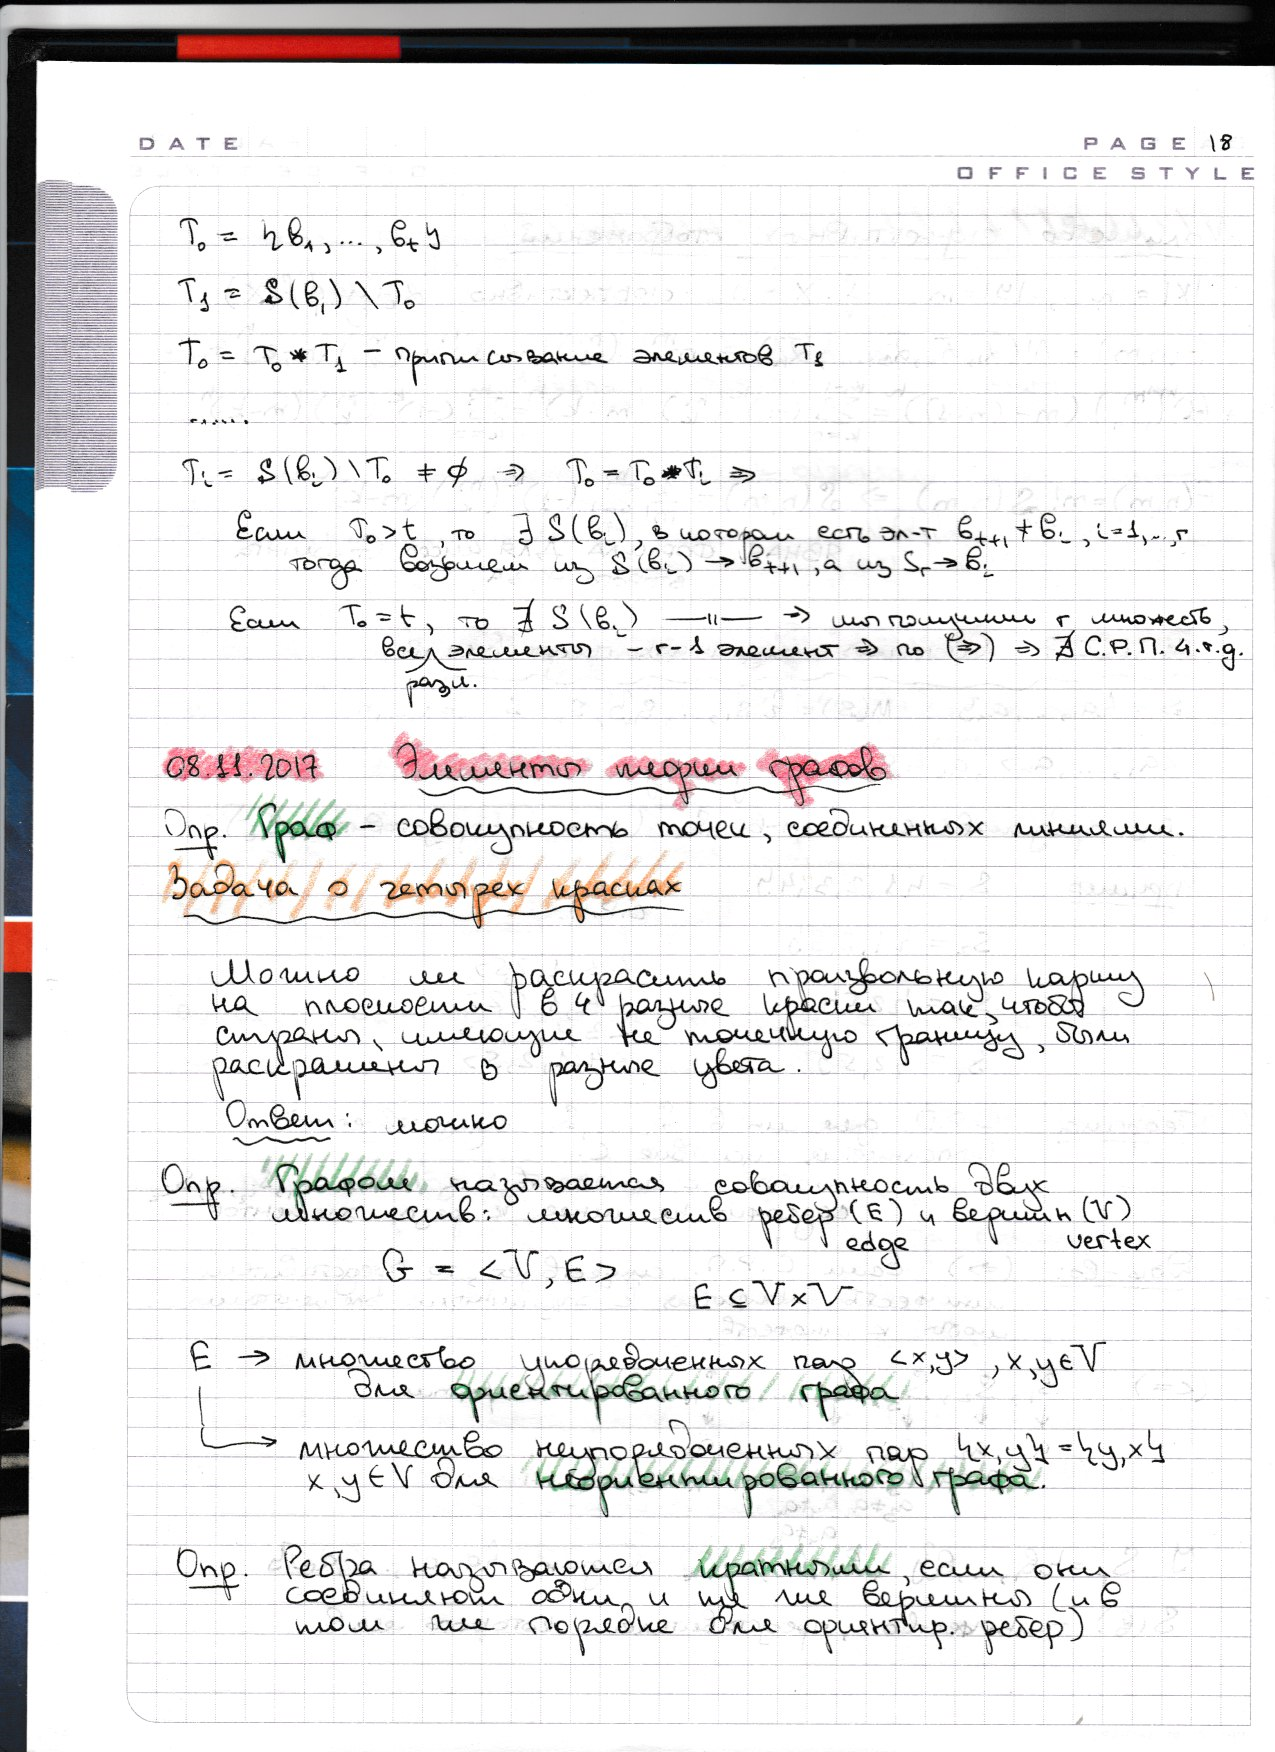 DATE
PAGE 18
OFFICE STYLE
T₀ = {b₁, ..., b_t}
T₁ = S(b₁) \ T₀
T₀ = T₀ * T₁ – приписывание элементов T₁
......
T_i = S(b_i) \ T₀ ≠ ∅ ⇒ T₀ = T₀ * T_i ⇒
Если T₀ > t, то ∃ S(b_i), в котором есть эл-т b_{t+1} ≠ b_i, i=1,...,r
тогда возьмем из S(b_i) → b_{t+1}, а из S_r → b_i
Если T₀ = t, то ∄ S(b_i) —||— ⇒ мы получили r множеств,
всех элементы – r-1 элемент ⇒ по (⇒) ⇒ ∄ С.Р.П. ч.т.д.
разл.
08.11.2017 Элементы теории графов
Опр. Граф – совокупность точек, соединенных линиями.
Задача о четырех красках
Можно ли раскрасить произвольную карту
на плоскости в 4 разные краски так, чтобы
страны, имеющие не точечную границу, были
раскрашены в разные цвета.
Ответ: можно
Опр. Графом называется совокупность двух
множеств: множеств ребер (E) и вершин (V)
edge vertex
G = <V, E>
E ⊆ V x V
E → множество упорядоченных пар <x,y>, x,y ∈ V
для ориентированного графа
→ множество неупорядоченных пар {x,y} = {y,x}
x,y ∈ V для неориентированного графа.
Опр. Ребра называются кратными, если они
соединяют одни и те же вершины (и в
том же порядке для ориентир. ребер)